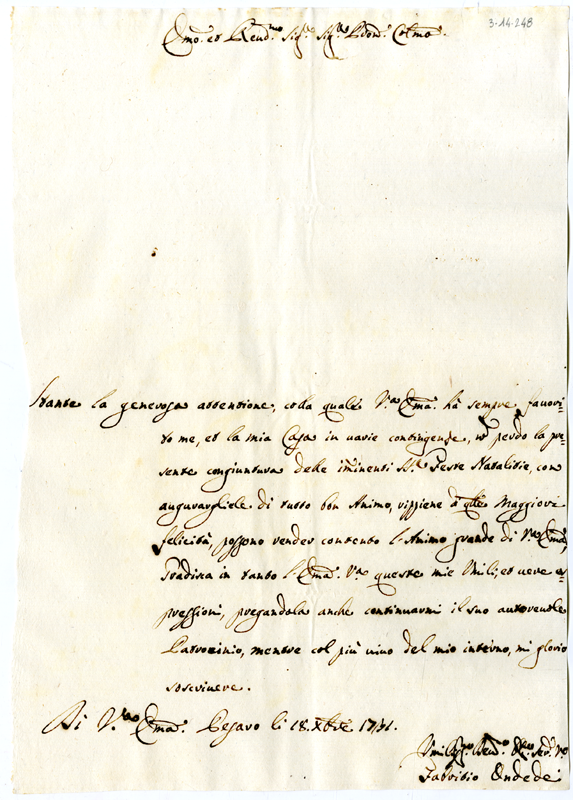 3-14-248
Emo. et Revd.mo Sig.r Sig.r Pron. Colmo.
Stante la generosa attentione, colla quale V.ra Ema. hà sempre favori-
to me, et la mia Casa in varie contingenze, nò perdo la pre-
sente congiuntura delle iminenti S.te Feste Natalitie, con
augurargliele di tutto bon Animo, ripiene di qlle Maggiori
felicità, possono render contento l'Animo grande di V.ra Ema.
Gradisca in tanto l'Ema. V.ra queste mie Umili, et vere es-
pressioni, pregandola anche continuarmi il suo autorevole
Patrocinio, mentre col più vivo del mio interno, mi glorio
soscrivere.
Di V.ra Ema. Pesaro li 18. Xbre 1731.
Umiliss.mo Dev.mo Obl.mo Ser.re Vro
Fabritio Ondedei